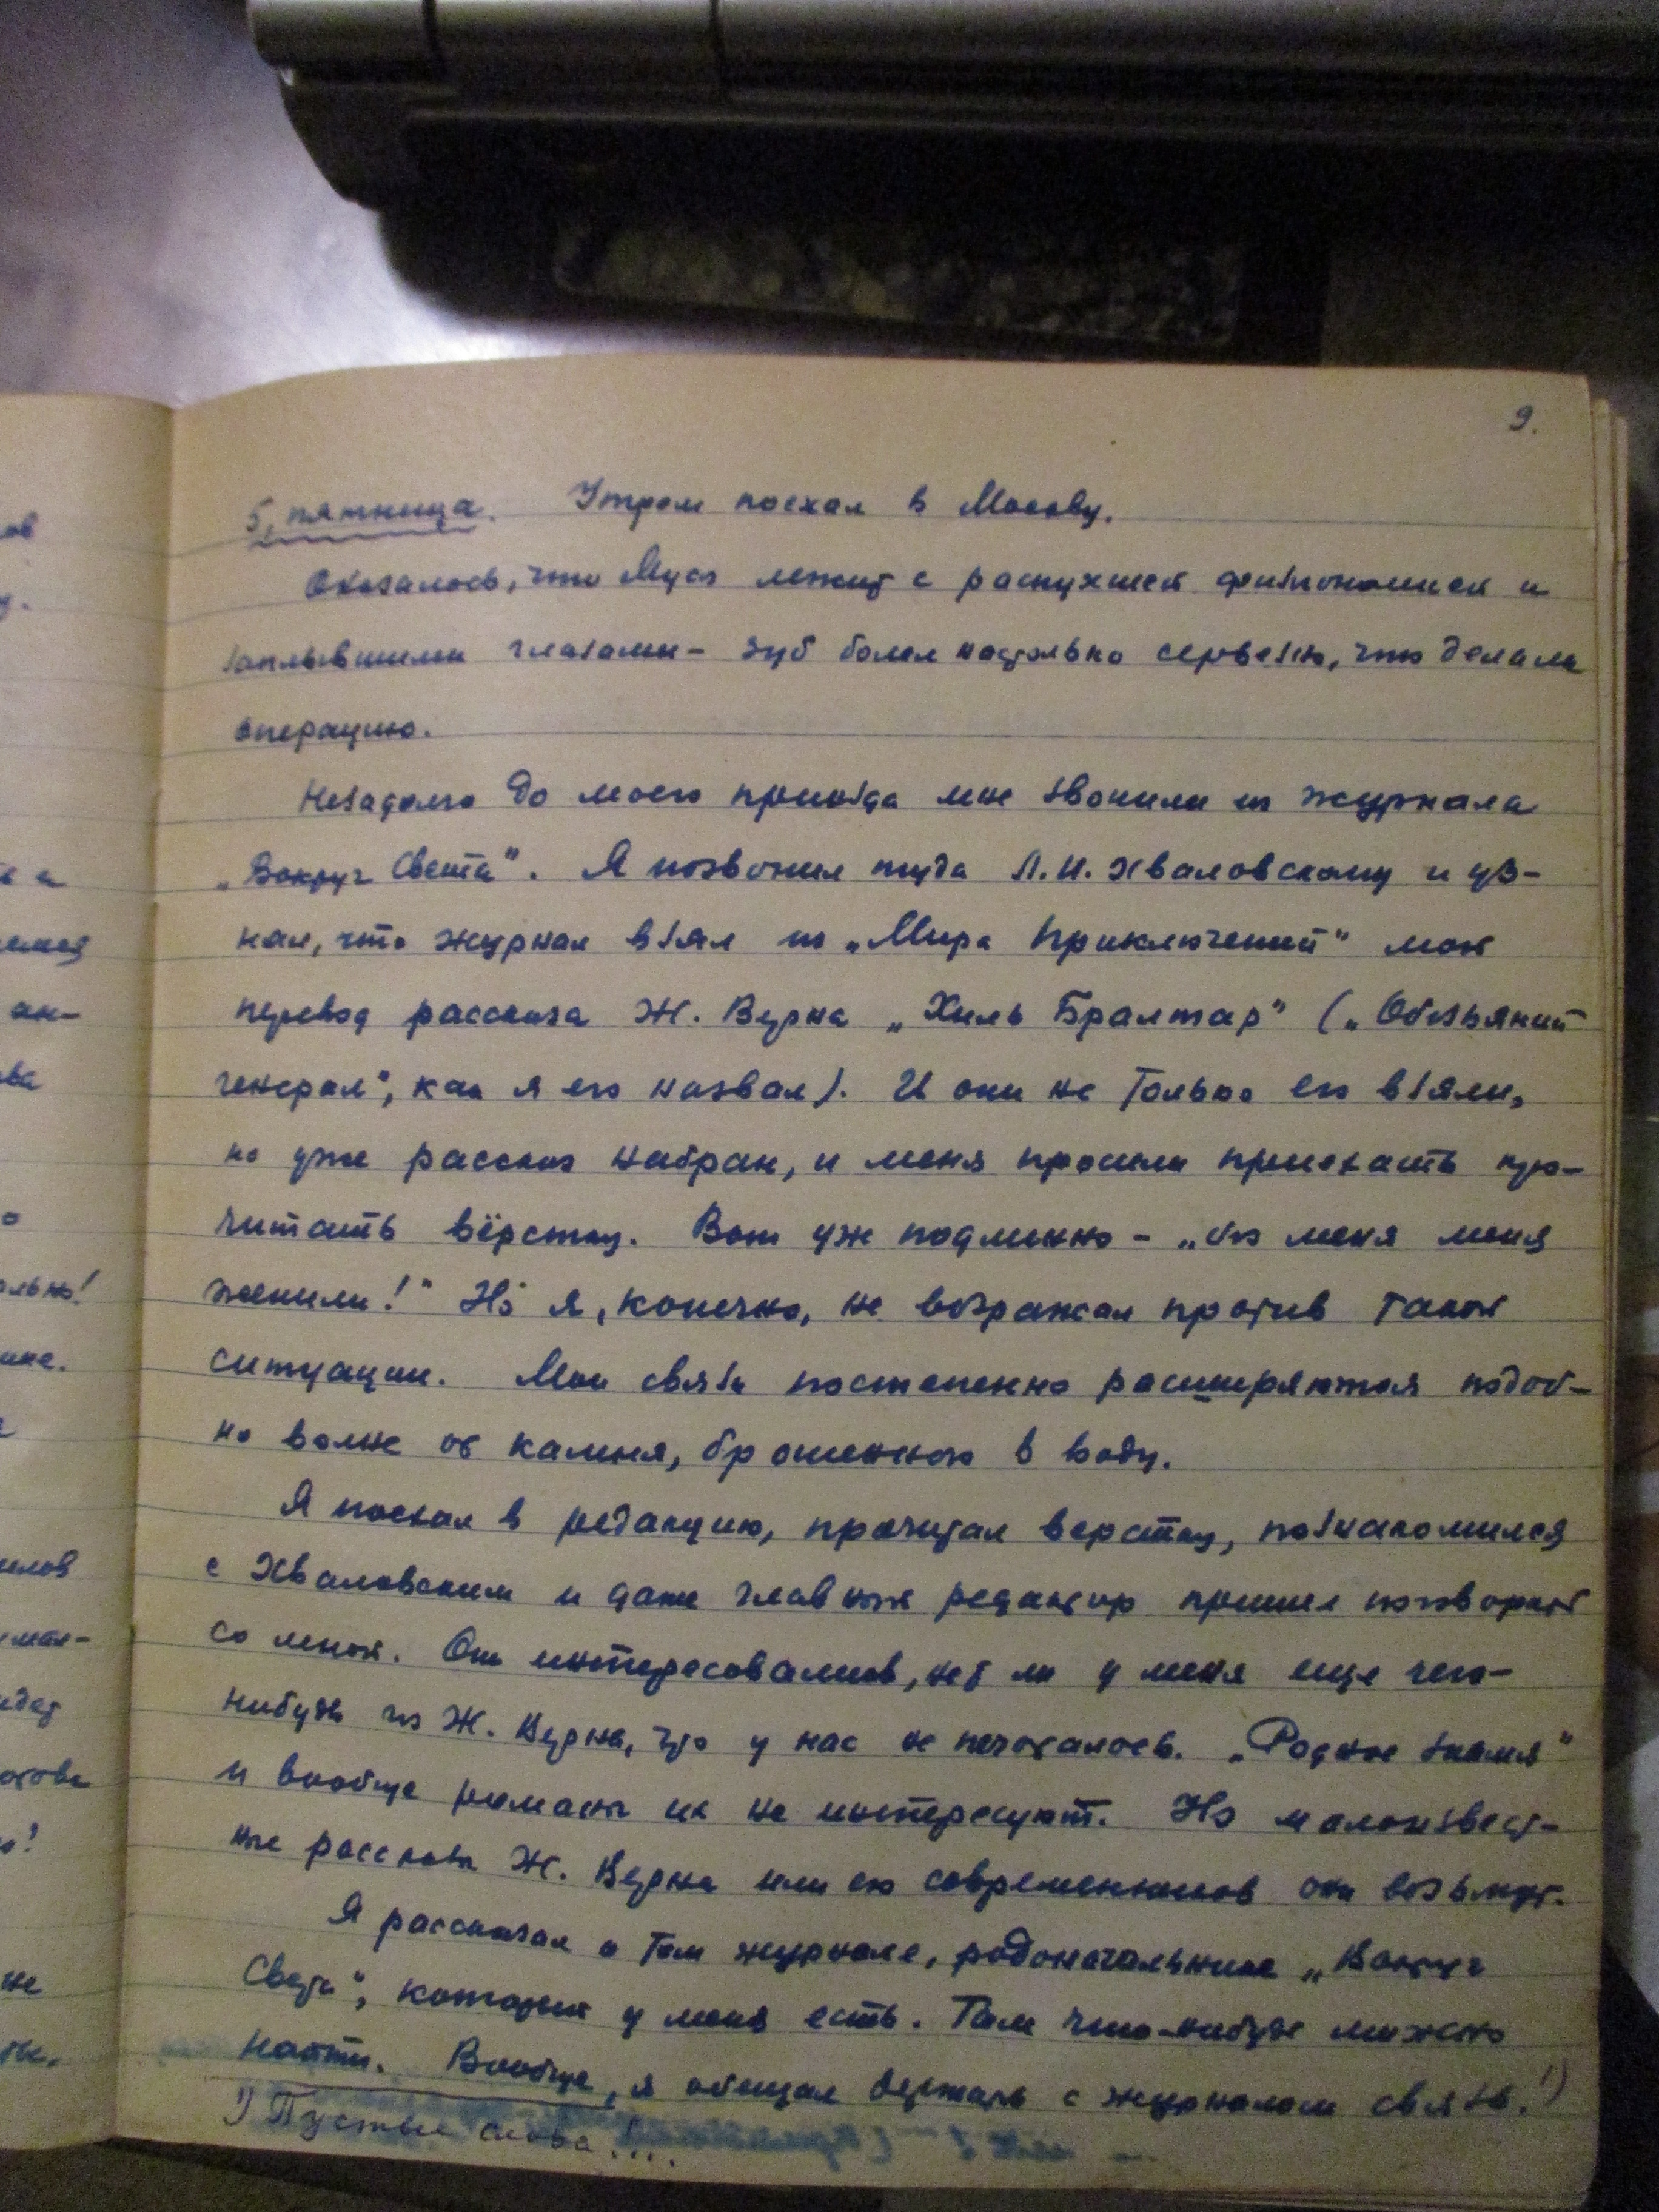 9.
5, пятница. Утром поехал в Москву.
Оказалось, что Муся лежит с распухшей физиономией и
заплывшими глазами – зуб болел настолько серьезно, что делали
операцию.
Незадолго до моего приезда мне звонили из журнала
„Вокруг Света". Я позвонил туда Л.И. Хваловскому и уз-
нал, что журнал взял из „Мира Приключений" мой
перевод рассказа Ж. Верна „Хиль Бралтар" („Обезьяний
генерал", как я его назвал). И они не только его взяли,
но уже рассказ набран, и меня просили приехать про-
читать вёрстку. Вот уж подлинно – „без меня меня
женили!" Но я, конечно, не возражал против такой
ситуации. Мои связи постепенно расширяются подоб-
но волне от камня, брошенного в воду.
Я поехал в редакцию, прочитал верстку, познакомился
с Хваловским и даже главный редактор пришел поговорить
со мной. Они интересовались, нет ли у меня еще чего-
нибудь из Ж. Верна, что у нас не печаталось. „Родное знамя"
и вообще романы их не интересуют. Но малоизвест-
ные рассказы Ж. Верна или его современников они возьмут.
Я рассказал о том журнале, родоначальнике „Вокруг
Света", который у меня есть. Там что-нибудь можно
найти. Вообще, я обещал держать с журналом связь.¹)
¹) Пустые слова!...